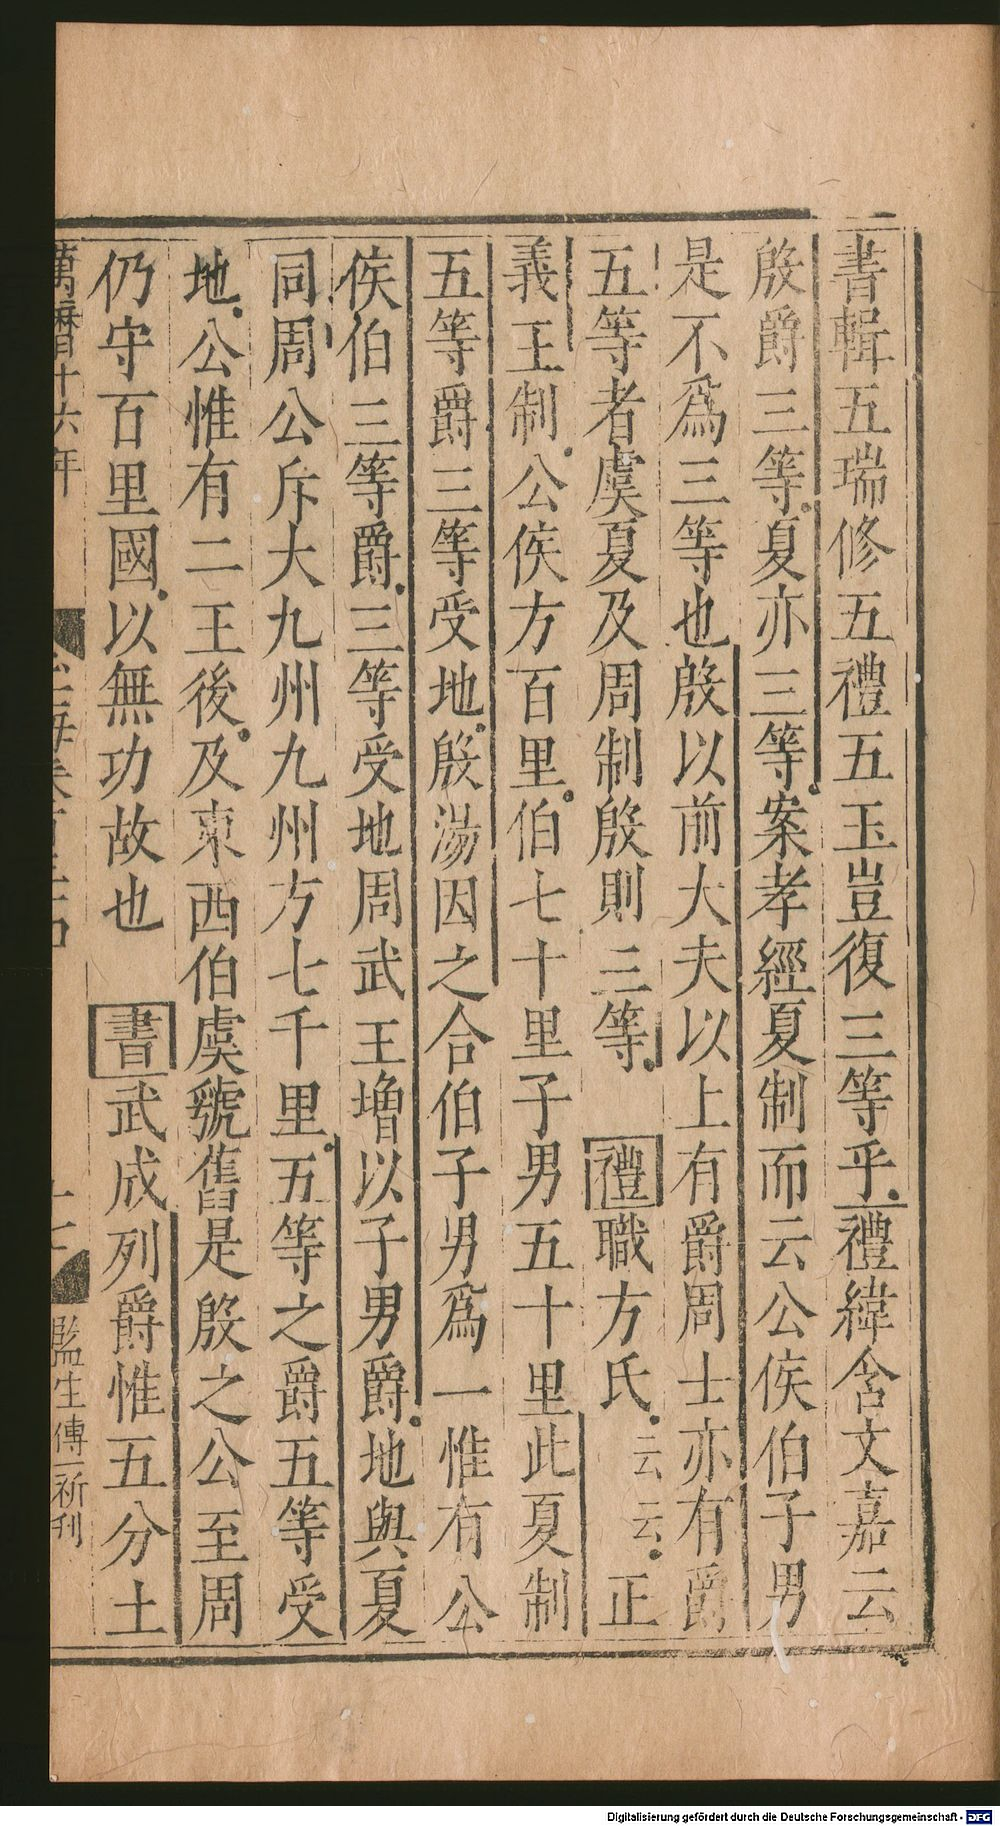 書輯五瑞修五禮五玉豈復三等乎禮緯含文嘉云
殷爵三等夏亦三等案孝經夏制而云公侯伯子男
是不爲三等也殷以前大夫以上有爵周士亦有爵
五等者虞夏及周制殷則三等 禮職方氏云云正
義王制公侯方百里伯七十里子男五十里此夏制
五等爵三等受地殷湯因之合伯子男爲一惟有公
侯伯三等爵三等受地周武王增以子男爵地與夏
同周公斥大九州九州方七千里五等之爵五等受
地公惟有二王後及東西伯虞虢舊是殷之公至周
仍守百里國以無功故也 書武成列爵惟五分土
萬曆十六年
監生傅一祈刊
Digitalisierung gefördert durch die Deutsche Forschungsgemeinschaft - DFG